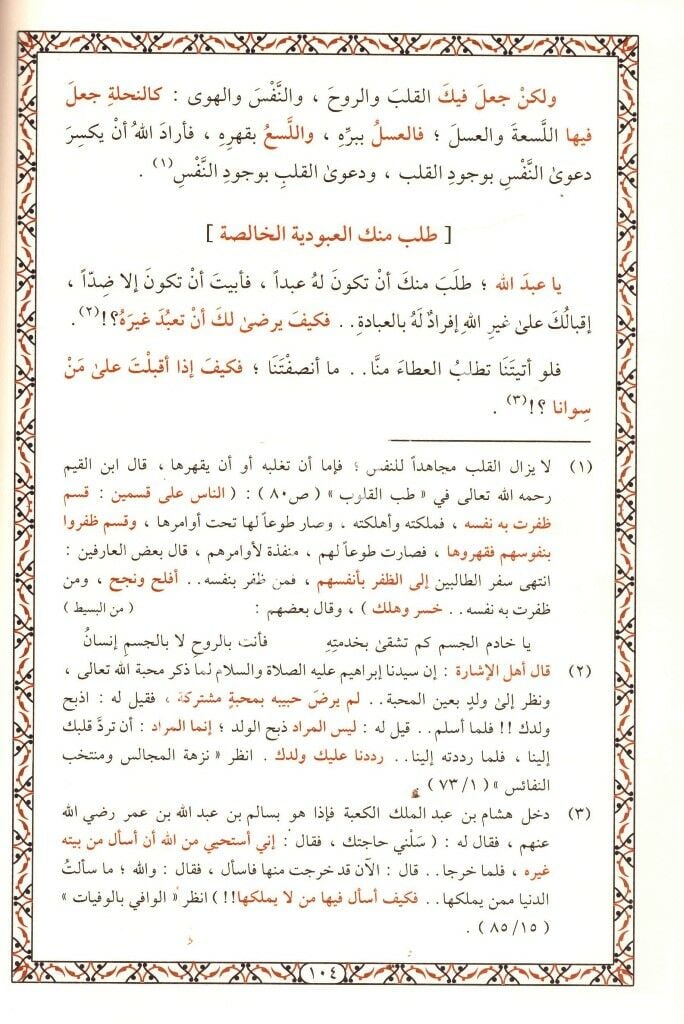 ولكنْ جعلَ فيكَ القلبَ والروحَ ، والنَّفْسَ والهوى : كالنحلةِ جعلَ
فيها اللَّسعةَ والعسلَ ؛ فالعسلُ ببرِّهِ ، واللَّسعُ بقهرِهِ ، فأرادَ اللهُ أنْ يكسِرَ
دعوىٰ النَّفْسِ بوجودِ القلب ، ودعوىٰ القلبِ بوجودِ النَّفْسِ(١) .
[ طلب منك العبودية الخالصة ]
يا عبدَ الله ؛ طلَبَ منكَ أنْ تكونَ لهُ عبداً ، فأبيتَ أنْ تكونَ إلا ضِدّاً ،
إقبالُكَ علىٰ غيرِ اللهِ إفرادٌ لَهُ بالعبادةِ.. فكيفَ يرضىٰ لكَ أنْ تعبُدَ غيرَهُ؟!(٢).
فلو أتيتَنَا تطلبُ العطاءَ منَّا.. ما أنصفْتَنَا ؛ فكيفَ إذا أقبلْتَ علىٰ مَنْ
سِوانا ؟!(٣) .
(١) لا يزال القلب مجاهداً للنفس ؛ فإما أن تغلبه أو أن يقهرها ، قال ابن القيم
رحمه الله تعالى في « طب القلوب » ( ص٨٠ ) : ( الناس على قسمين : قسم
ظفرت به نفسه ، فملكته وأهلكته ، وصار طوعاً لها تحت أوامرها ، وقسم ظفروا
بنفوسهم فقهروها ، فصارت طوعاً لهم ، منفذة لأوامرهم ، قال بعض العارفين :
انتهى سفر الطالبين إلى الظفر بأنفسهم ، فمن ظفر بنفسه.. أفلح ونجح ، ومن
ظفرت به نفسه.. خسر وهلك ) ، وقال بعضهم : ( من البسيط )
يا خادم الجسم كم تشقىٰ بخدمتِهِ فأنت بالروحِ لا بالجسمِ إنسانُ
(٢) قال أهل الإشارة : إن سيدنا إبراهيم عليه الصلاة والسلام لما ذكر محبة الله تعالى ،
ونظر إلىٰ ولدٍ بعين المحبة.. لم يرضَ حبيبه بمحبةٍ مشتركة ، فقيل له : اذبح
ولدك !! فلما أسلم.. قيل له : ليس المراد ذبح الولد ؛ إنما المراد : أن تردَّ قلبك
إلينا ، فلما رددته إلينا.. رددنا عليك ولدك . انظر « نزهة المجالس ومنتخب
النفائس » ( ١/ ٧٣ ) .
(٣) دخل هشام بن عبد الملك الكعبة فإذا هو بسالم بن عبد الله بن عمر رضي الله
عنهم ، فقال له : ( سَلْني حاجتك ، فقال : إني أستحيي من الله أن أسأل من بيته
غيره ، فلما خرجا.. قال : الآن قد خرجت منها فاسأل ، فقال : والله ؛ ما سألتُ
الدنيا ممن يملكها.. فكيف أسأل فيها من لا يملكها!! ) انظر « الوافي بالوفيات »
( ١٥/ ٨٥ ) .
١٠٤